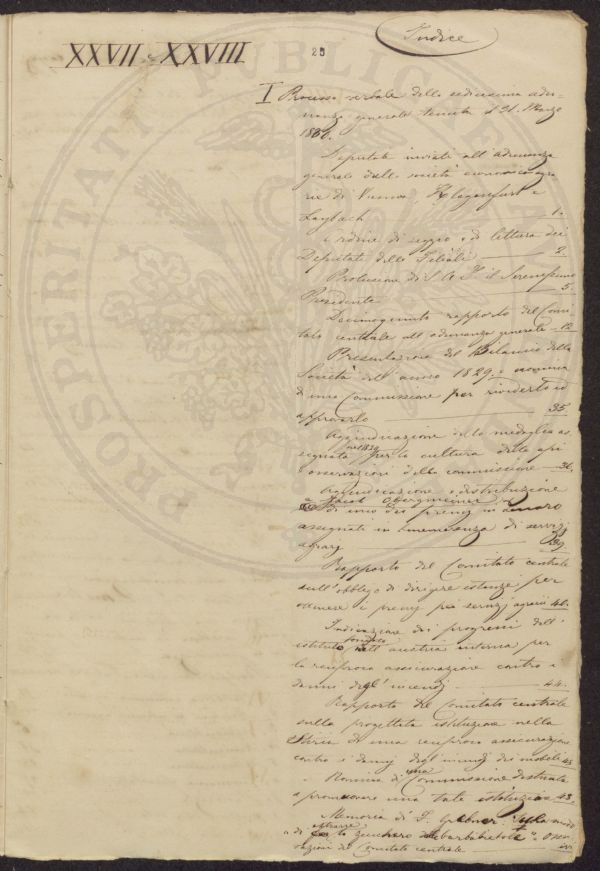 Indice
XXVII e XXVIII
25
PROSPERITATI PUBLICAE
I Processo verbale della sedicesima adu-
nanza generale tenuta il 31. Marzo
1830.
Deputati inviati all'adunanza
generale dalle società economico agra-
rie di Vienna, Klagenfurt e
Laybach 1.
Ordine di seggio e di lettura dei
Deputati delle Filiali 2.
Prolusione di S A I il Serenissimo
Presidente 5.
Decimoquinto rapporto del Comi-
tato centrale all'adunanza generale 12
Presentazione del Bilancio della
Società dell'anno 1829. e nomina
d'una Commissione per rivederlo ed
approvarlo 35.
Aggiudicazione della medaglia as-
segnata pel 1829 per la cultura delle api
e osservazioni della commissione 36.
Aggiudicazione e distribuzione
a Jacob Obergmeiner
di uno dei premj in denaro
assegnati in ricompensa di servizj
agrarj 39
Rapporto del Comitato centrale
sull'obbligo di dirigere istanze per
ottenere i premj per servizj agrarii 40.
Indicazione dei progressi dell'
istituto nell'austria interna per
la reciproca assicurazione contro i
danni degl'incendj 44.
Rapporto del Comitato centrale
sulla progettata istituzione nella
Stiria di una reciproca assicurazione
contro i danni degl'incendj dei mobili 45
Nomina di una Commissione destinata
a promuovere una tale istituzione 48.
Memoria di F. Grebner "sulla modo
di estrarre lo zucchero dalle barbabietole" e osser-
vazioni del Comitato centrale